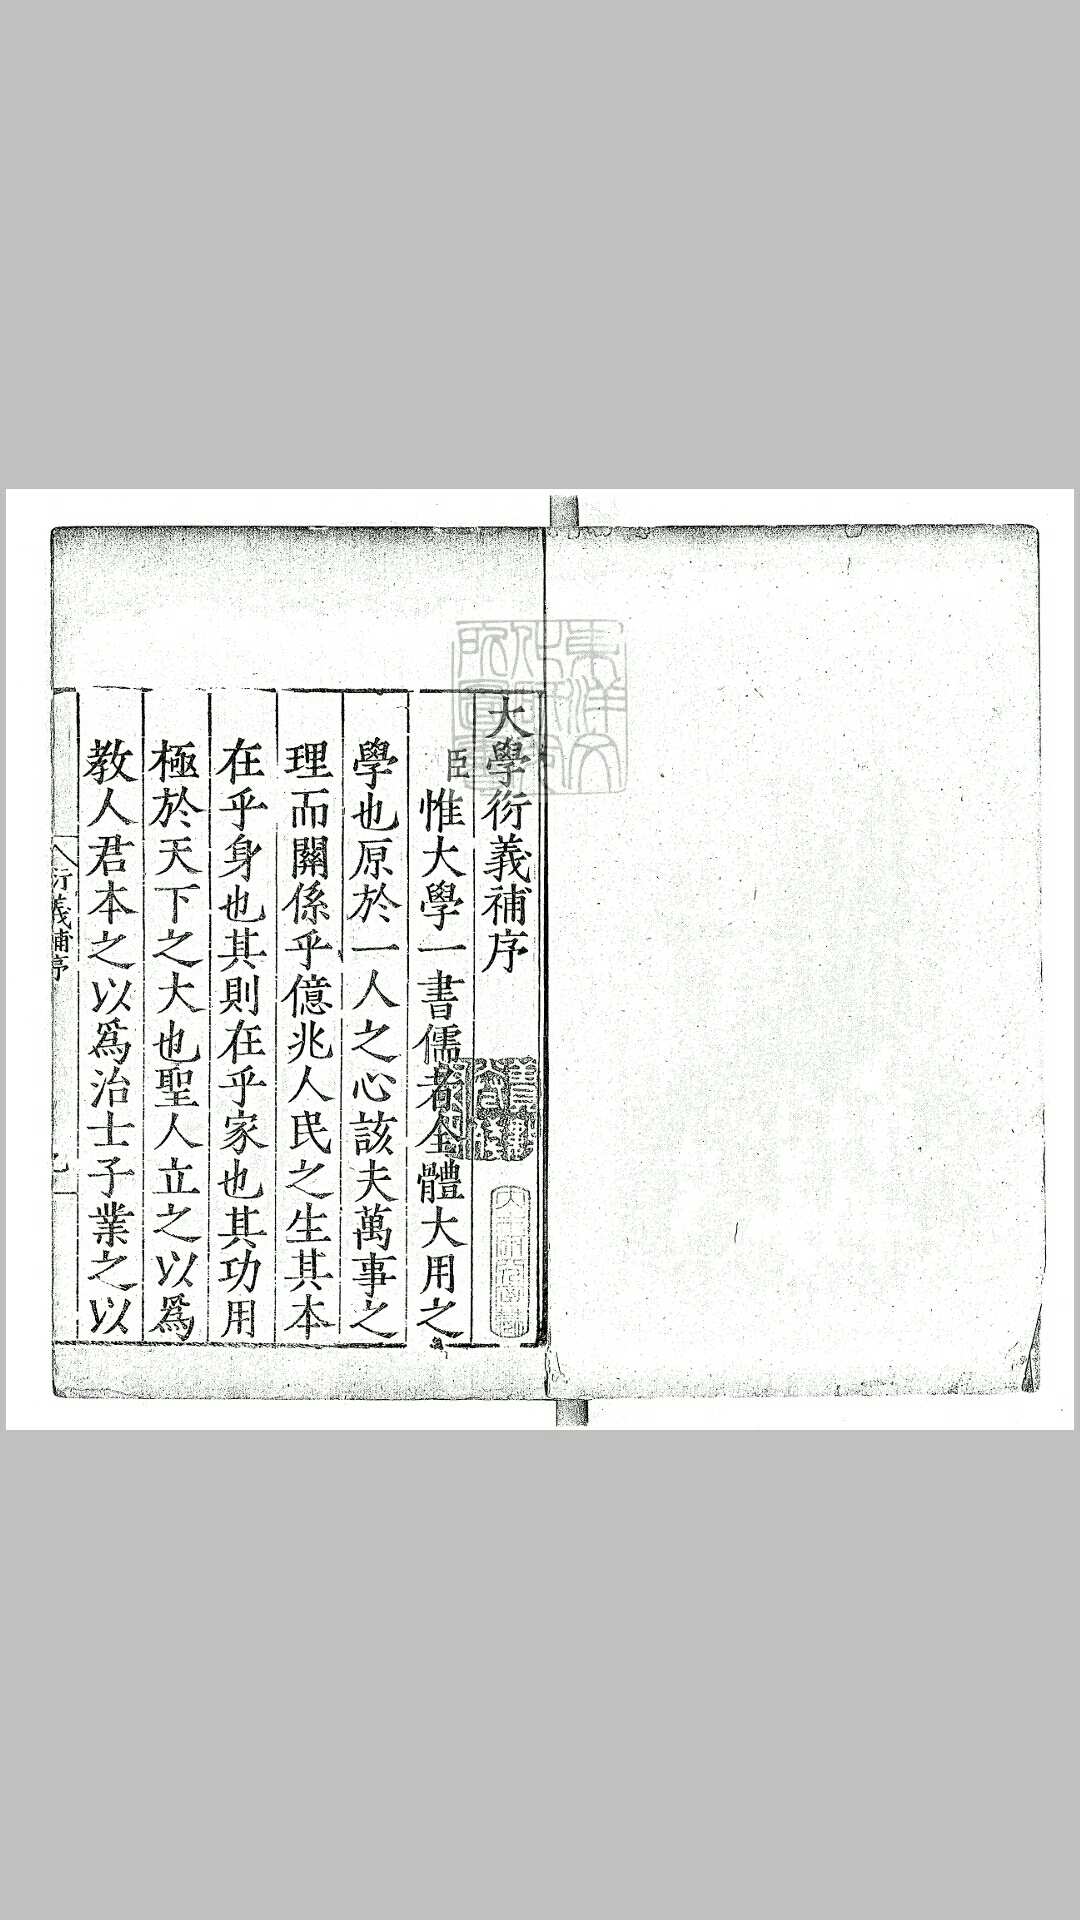 大學衍義補序
臣惟大學一書儒者全體大用之
學也原於一人之心該夫萬事之
理而關係乎億兆人民之生其本
在乎身也其則在乎家也其功用
極於天下之大也聖人立之以爲
教人君本之以爲治士子業之以
衍義補序